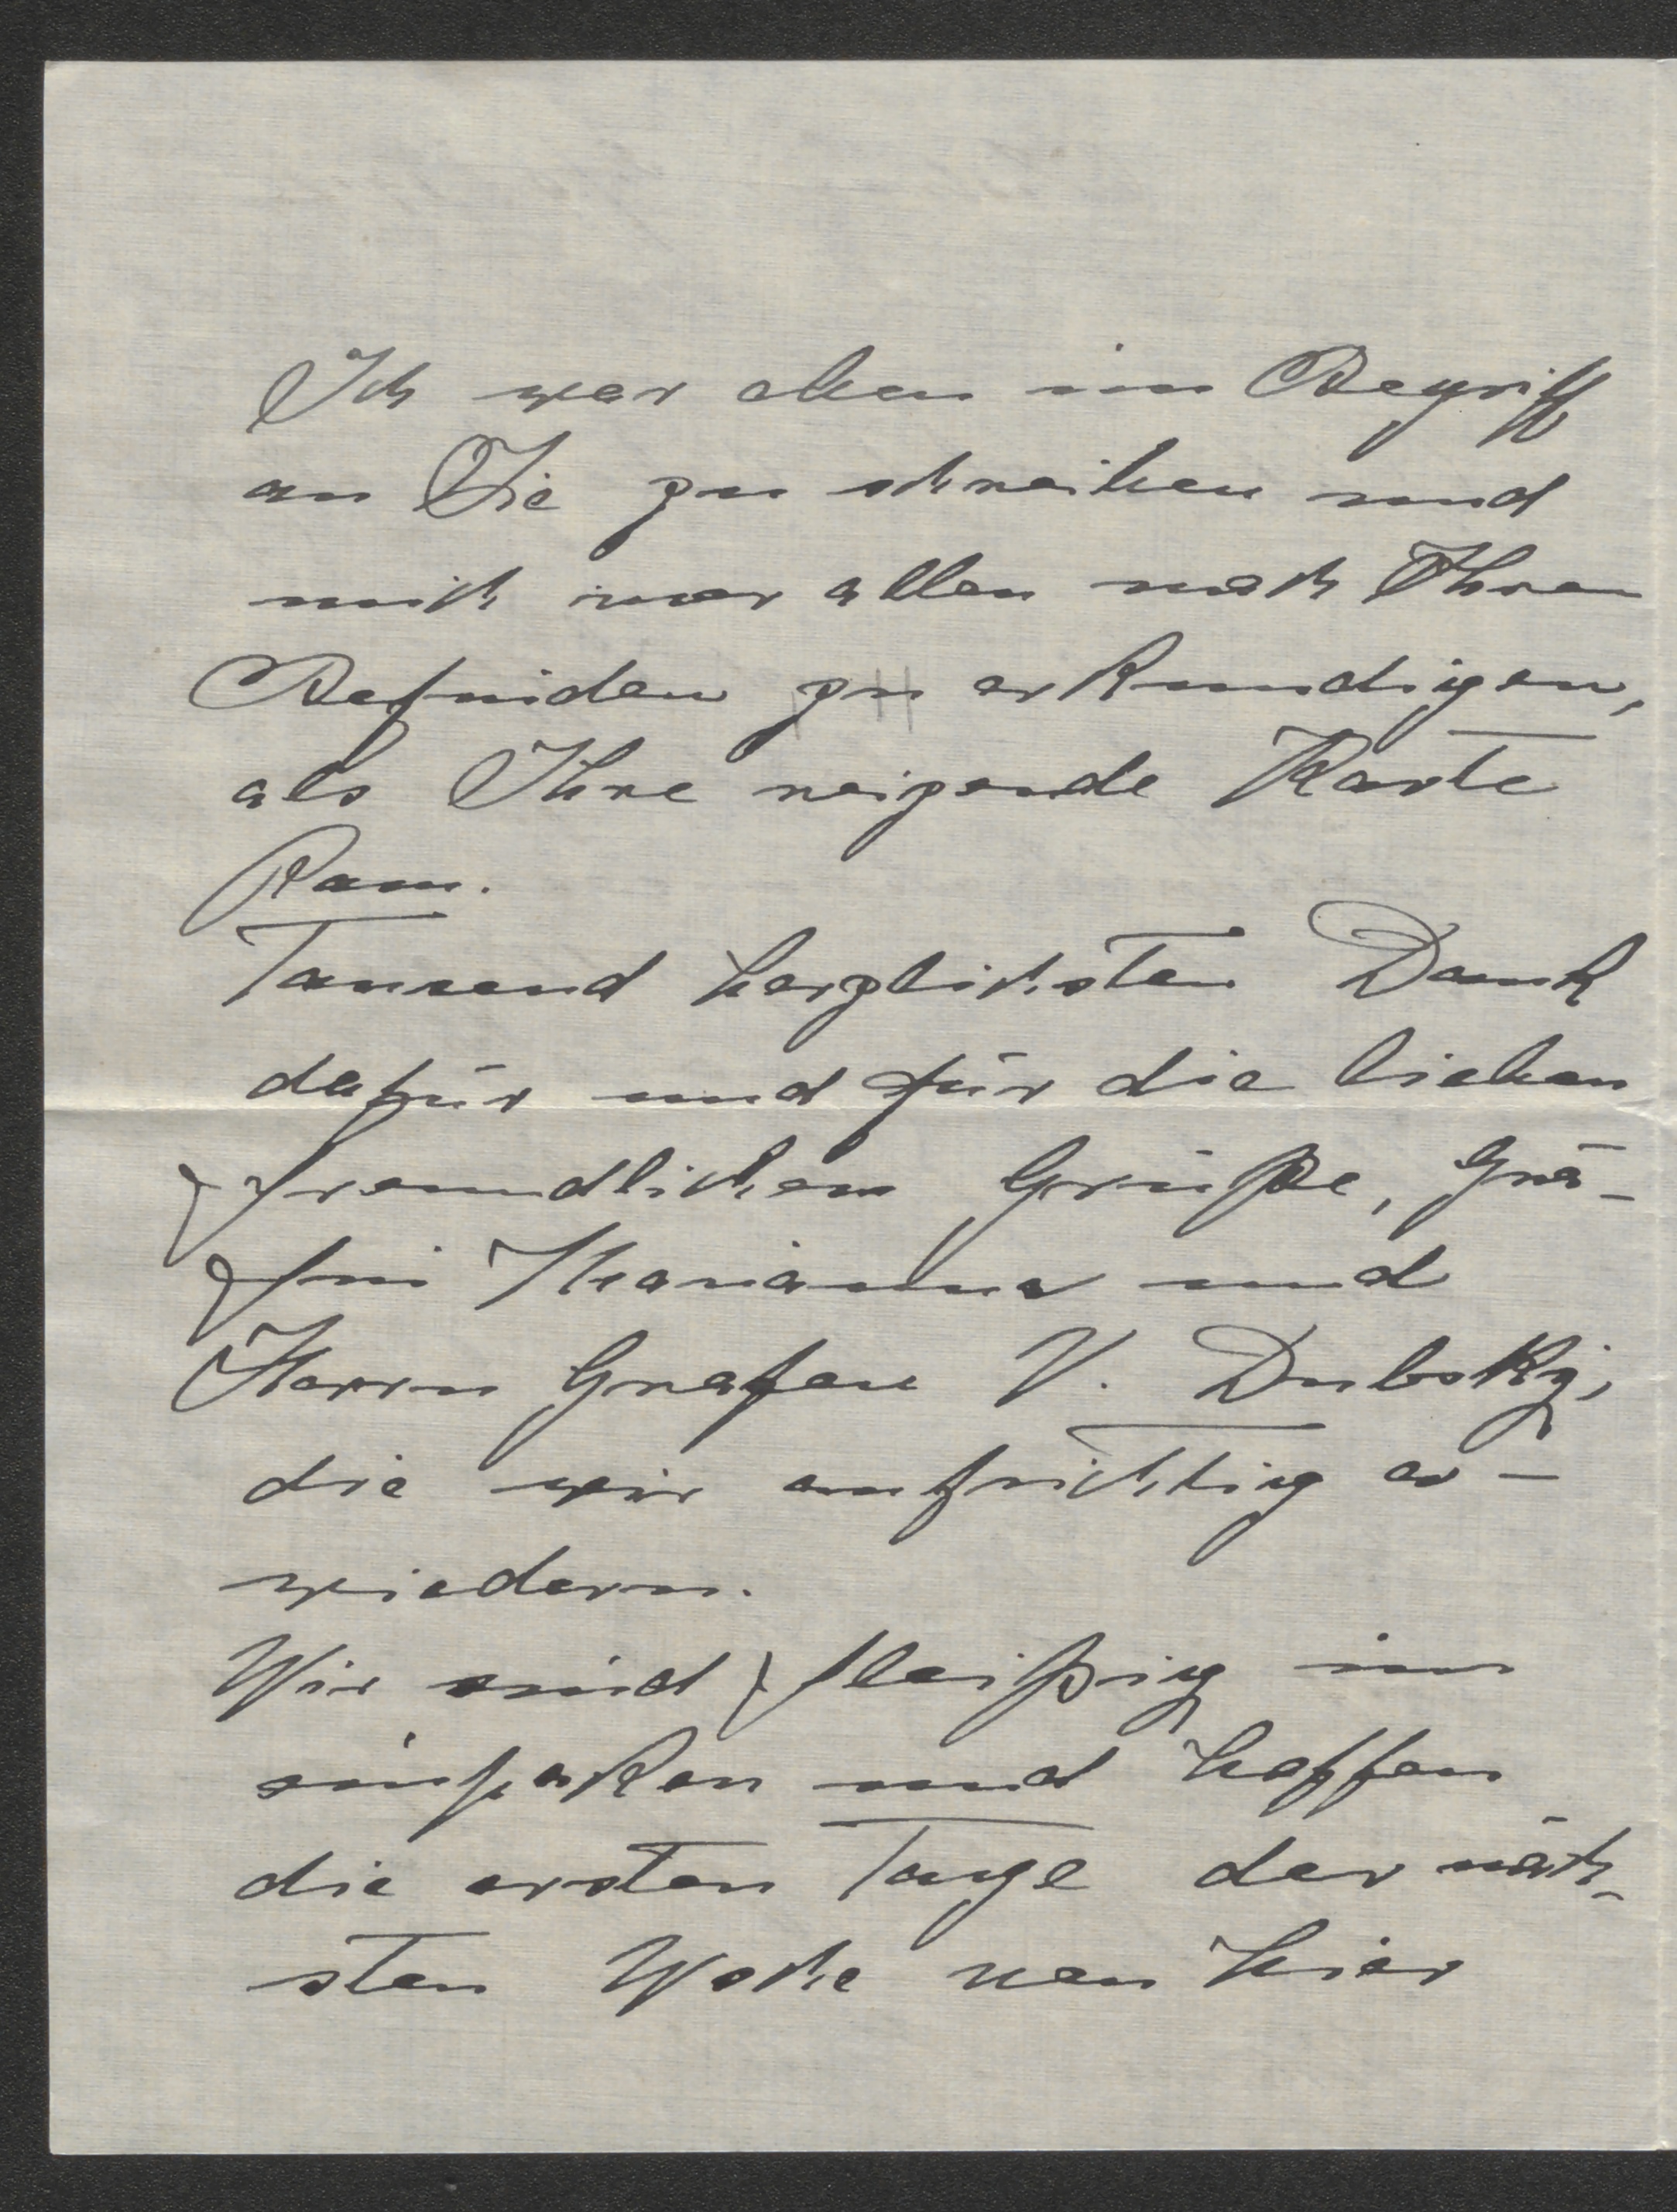 Ich war eben im Begriff
an Sie zu schreiben und
mich vor allen nach Ihren
Befinden zu erkundigen,
als Ihre reizende Karte
kam.
Tausend herzlichsten Dank
dafür und für die lieben
freundlichen Grüße, Grä-
fin Marianne und
Herrn Grafen V. Dubsky,
die wir aufrichtig er-
wiedern.
Wir sind fleißig im
einpaken und hoffen
die ersten Tage der näch-
sten Woche von hier